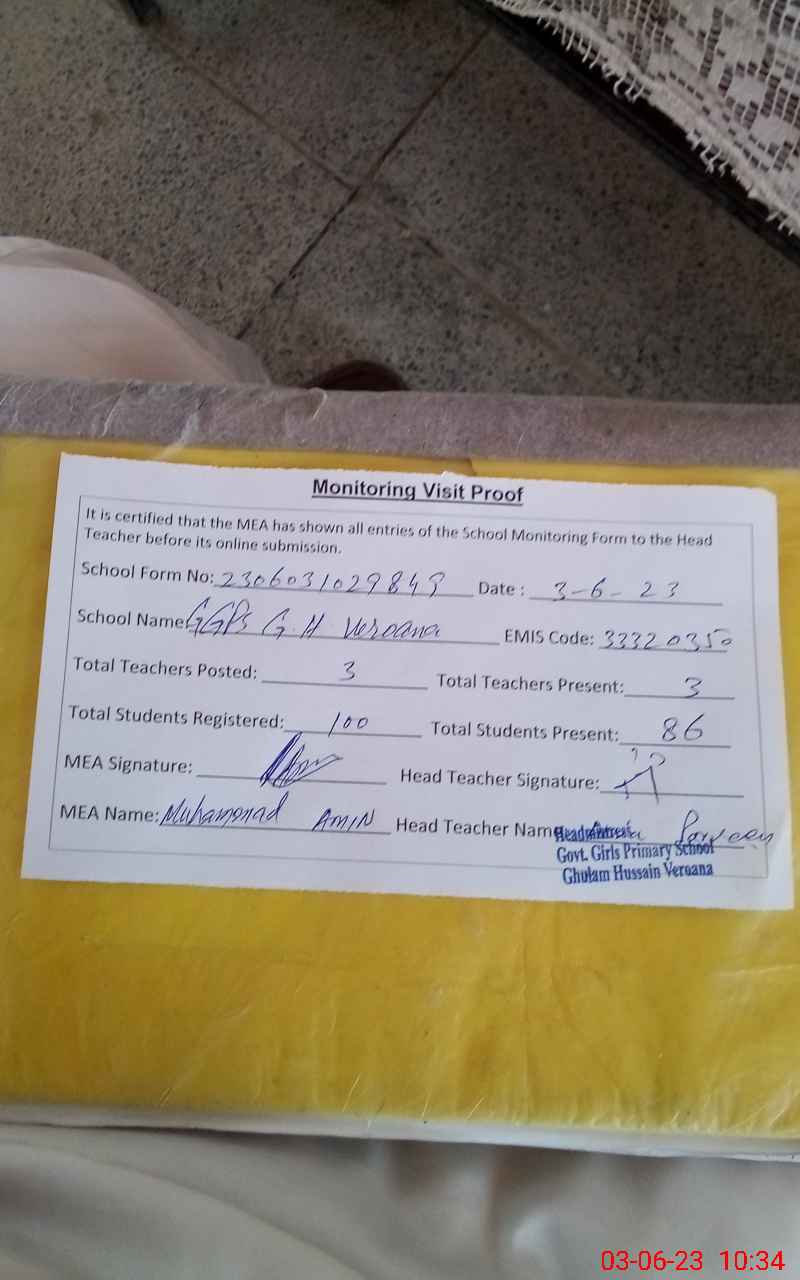 Monitoring Visit Proof
It is certified that the MEA has shown all entries of the School Monitoring Form to the Head
Teacher before its online submission.
School Form No: 2306031029849 Date : 3-6-23
School Name: GGPS G H Veroana EMIS Code: 33320350
Total Teachers Posted: 3 Total Teachers Present: 3
Total Students Registered: 100 Total Students Present: 86
MEA Signature: Head Teacher Signature:
MEA Name: Muhammad AMIN Head Teacher Name Parveen
Headmistress
Govt. Girls Primary School
Ghulam Hussain Veroana
03-06-23 10:34